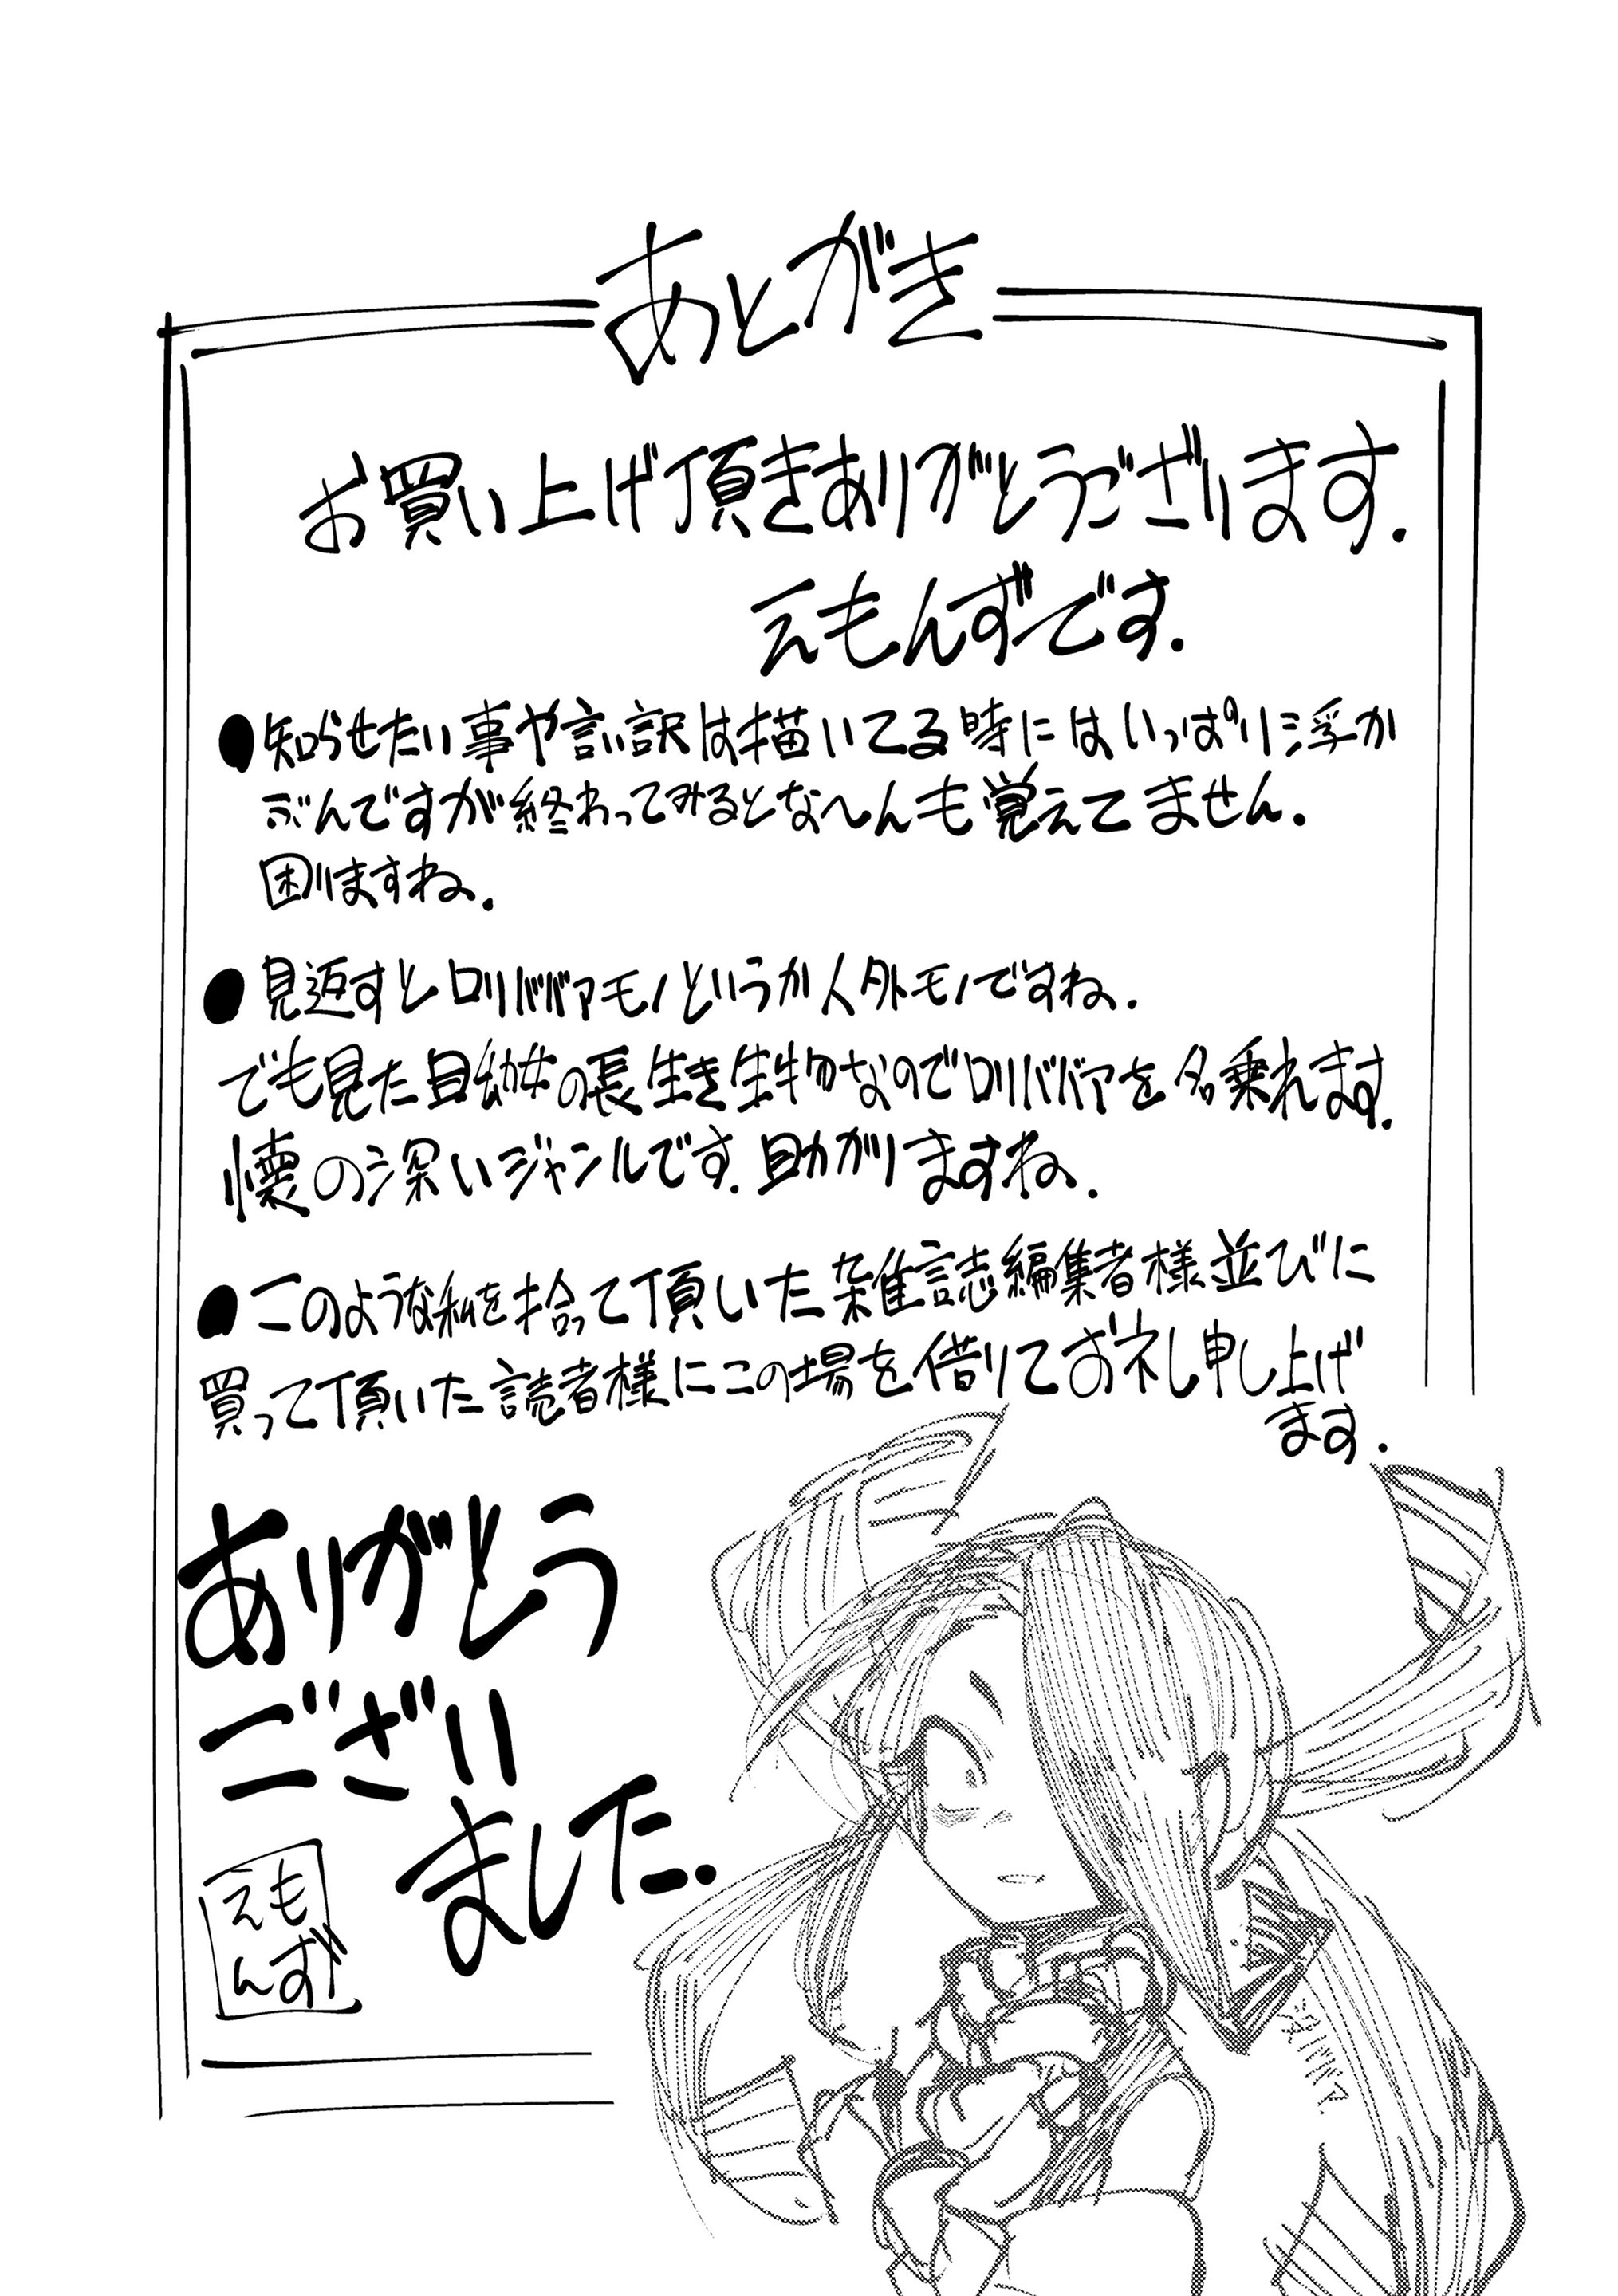 あとがき
お買い上げ頂きありがとうございます.
えもんずです.
●知らせたい事や言い訳は描いてる時にはいっぱい浮か
ぶんですが終わってみるとなへんも覚えてません.
困りますね.
●見返すとロリババアモノというか人外モノですね.
でも見た目幼女の長生き生物なのでロリババアを名乗れます.
懐の深いジャンルです.助かりますね.
●このような私を拾って頂いた雑誌編集者様並びに
買って頂いた読者様にこの場を借りてお礼申し上げ
ます.
ありがとう
ござい
ました.
えも
んず